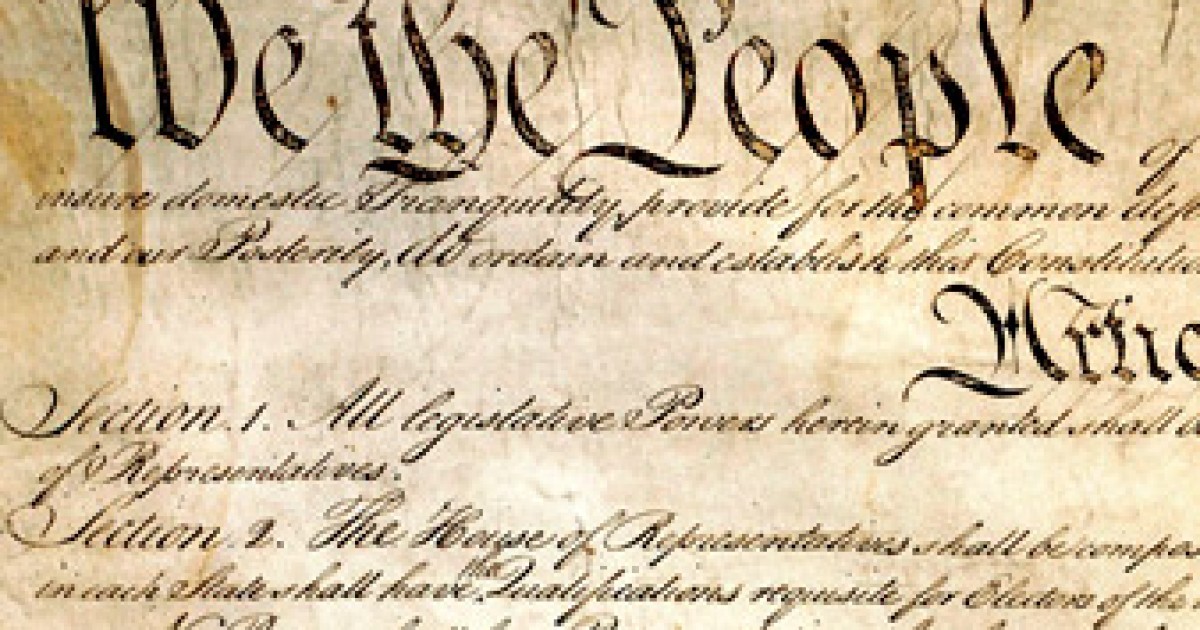 We the People
of
insure domestic Tranquility, provide for the common
and our Posterity, do ordain and establish this
Section. 1. All legislative Powers herein granted shall
of Representatives.
Section. 2. The House of Representatives shall be
in each State shall have the Qualifications requisite for Electors of the